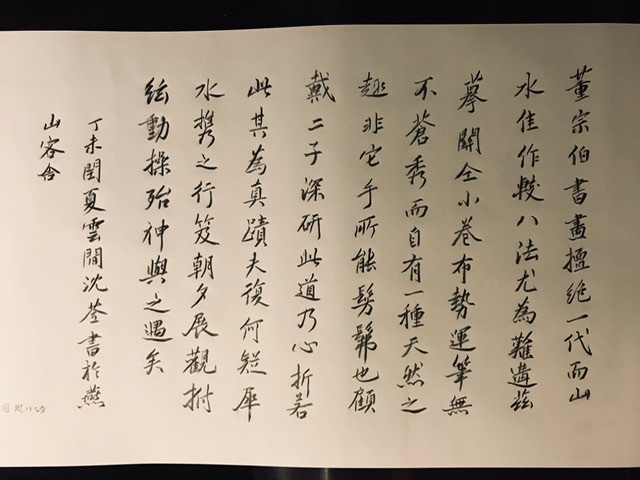 董宗伯書畫擅絕一代而山
水佳作較八法尤為難遘茲
摹關仝小卷布勢運筆無
不蒼秀而自有一種天然之
趣非它手所能髣髴也顧
戴二子深研此道乃心折若
此其為真蹟夫復何疑犀
水攜之行笈朝夕展觀拊
絃動操殆神與之遇矣
丁未閏夏雲間沈荃書於燕
山客舍